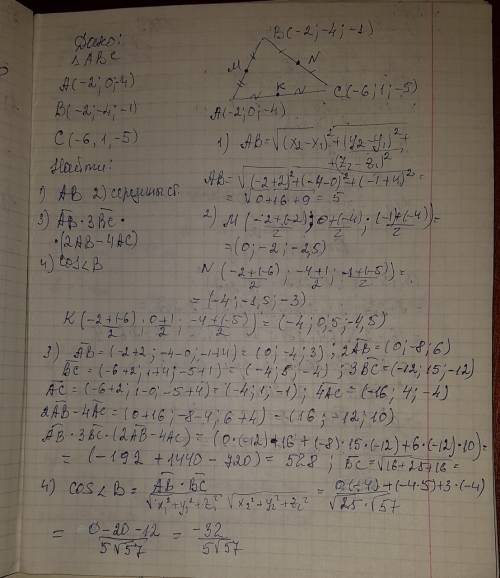 Дано:
△ABC
A(-2; 0; -4)
B(-2; -4; -1)
C(-6, 1, -5)
Найти:
1) AB 2) середины ст
3) AB·3BC·
·(2AB-4AC)
4) cos∠B
B(-2; -4; -1)
M N
K C(-6; 1; -5)
A(-2; 0; -4)
1) AB=√(x₂-x₁)²+(y₂-y₁)²+
+(z₂-z₁)²
AB=√(-2+2)²+(-4-0)²+(-1+4)² =
= √0+16+9 = 5
2) M(-2+(-2)/2; 0+(-4)/2; (-1)+(-4)/2)=
=(0; -2; -2,5)
N(-2+(-6)/2; -4+1/2; -1+(-5)/2)=
= (-4; -1,5; -3)
K(-2+(-6)/2; 0+1/2; -4+(-5)/2) = (-4; 0,5; -4,5)
3) AB=(-2+2; -4-0; -1+4) = (0; -4; 3); 2AB=(0; -8; 6)
BC=(-6+2; 1+4; -5+1)=(-4; 5; -4); 3BC=(-12; 15; -12)
AC=(-6+2; 1-0; -5+4)=(-4; 1; -1); 4AC=(-16; 4; -4)
2AB-4AC=(0+16; -8-4; 6+4)=(16; -12; 10)
AB·3BC·(2AB-4AC)=(0·(-12)·16+(-8)·15·(-12)+6·(-12)·10)=
=(-192+1440-720)=528; BC=√16+25+16=
4) cos∠B= AB·BC/√x₁²+y₁²+z₁² √x₂²+y₂²+z₂² = 0·(-4)+(-4·5)+3·(-4)/√25·√57
= 0-20-12/5√57 = -32/5√57